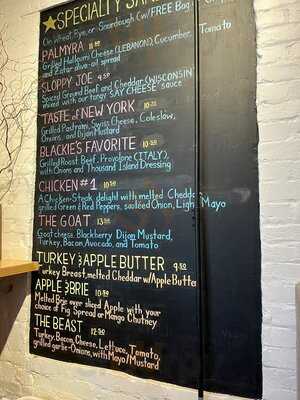 SPECIALTY
On Wheat, Rye, or Sourdough (w/FREE Bag
PALMYRA
Grilled Halloumi Cheese (LEBANON), Cucumber, Tomato
and Zatar-olive-oil spread
SLOPPY JOE 9.50
Spiced Ground Beef and Cheddar (WISCONSIN
mixed with our tangy SAY CHEESE sauce
TASTE of NEW YORK
Grilled Pastrami, Swiss Cheese, Coleslaw,
Onions, and Dijon Mustard
BLACKIE'S FAVORITE
Grilled Roast Beef, Provolone (ITALY),
with Onions and Thousand Island Dressing
CHICKEN #1 10.50
A Chicken-Steak delight with melted Cheddar
grilled Green & Red Peppers, sautéed Onion, Light Mayo
THE GOAT
Goat cheese, Blackberry Dijon Mustard,
Turkey, Bacon, Avocado, and Tomato
TURKEY & APPLE BUTTER 9.50
Turkey Breast, melted Cheddar w/Apple Butter
APPLE & BRIE 10.50
Melted Brie over sliced Apple with your
choice of Fig Spread or Mango Chutney
THE BEAST
Turkey, Bacon, Cheese, Lettuce, Tomato,
grilled garlic-Onions, with Mayo/Mustard